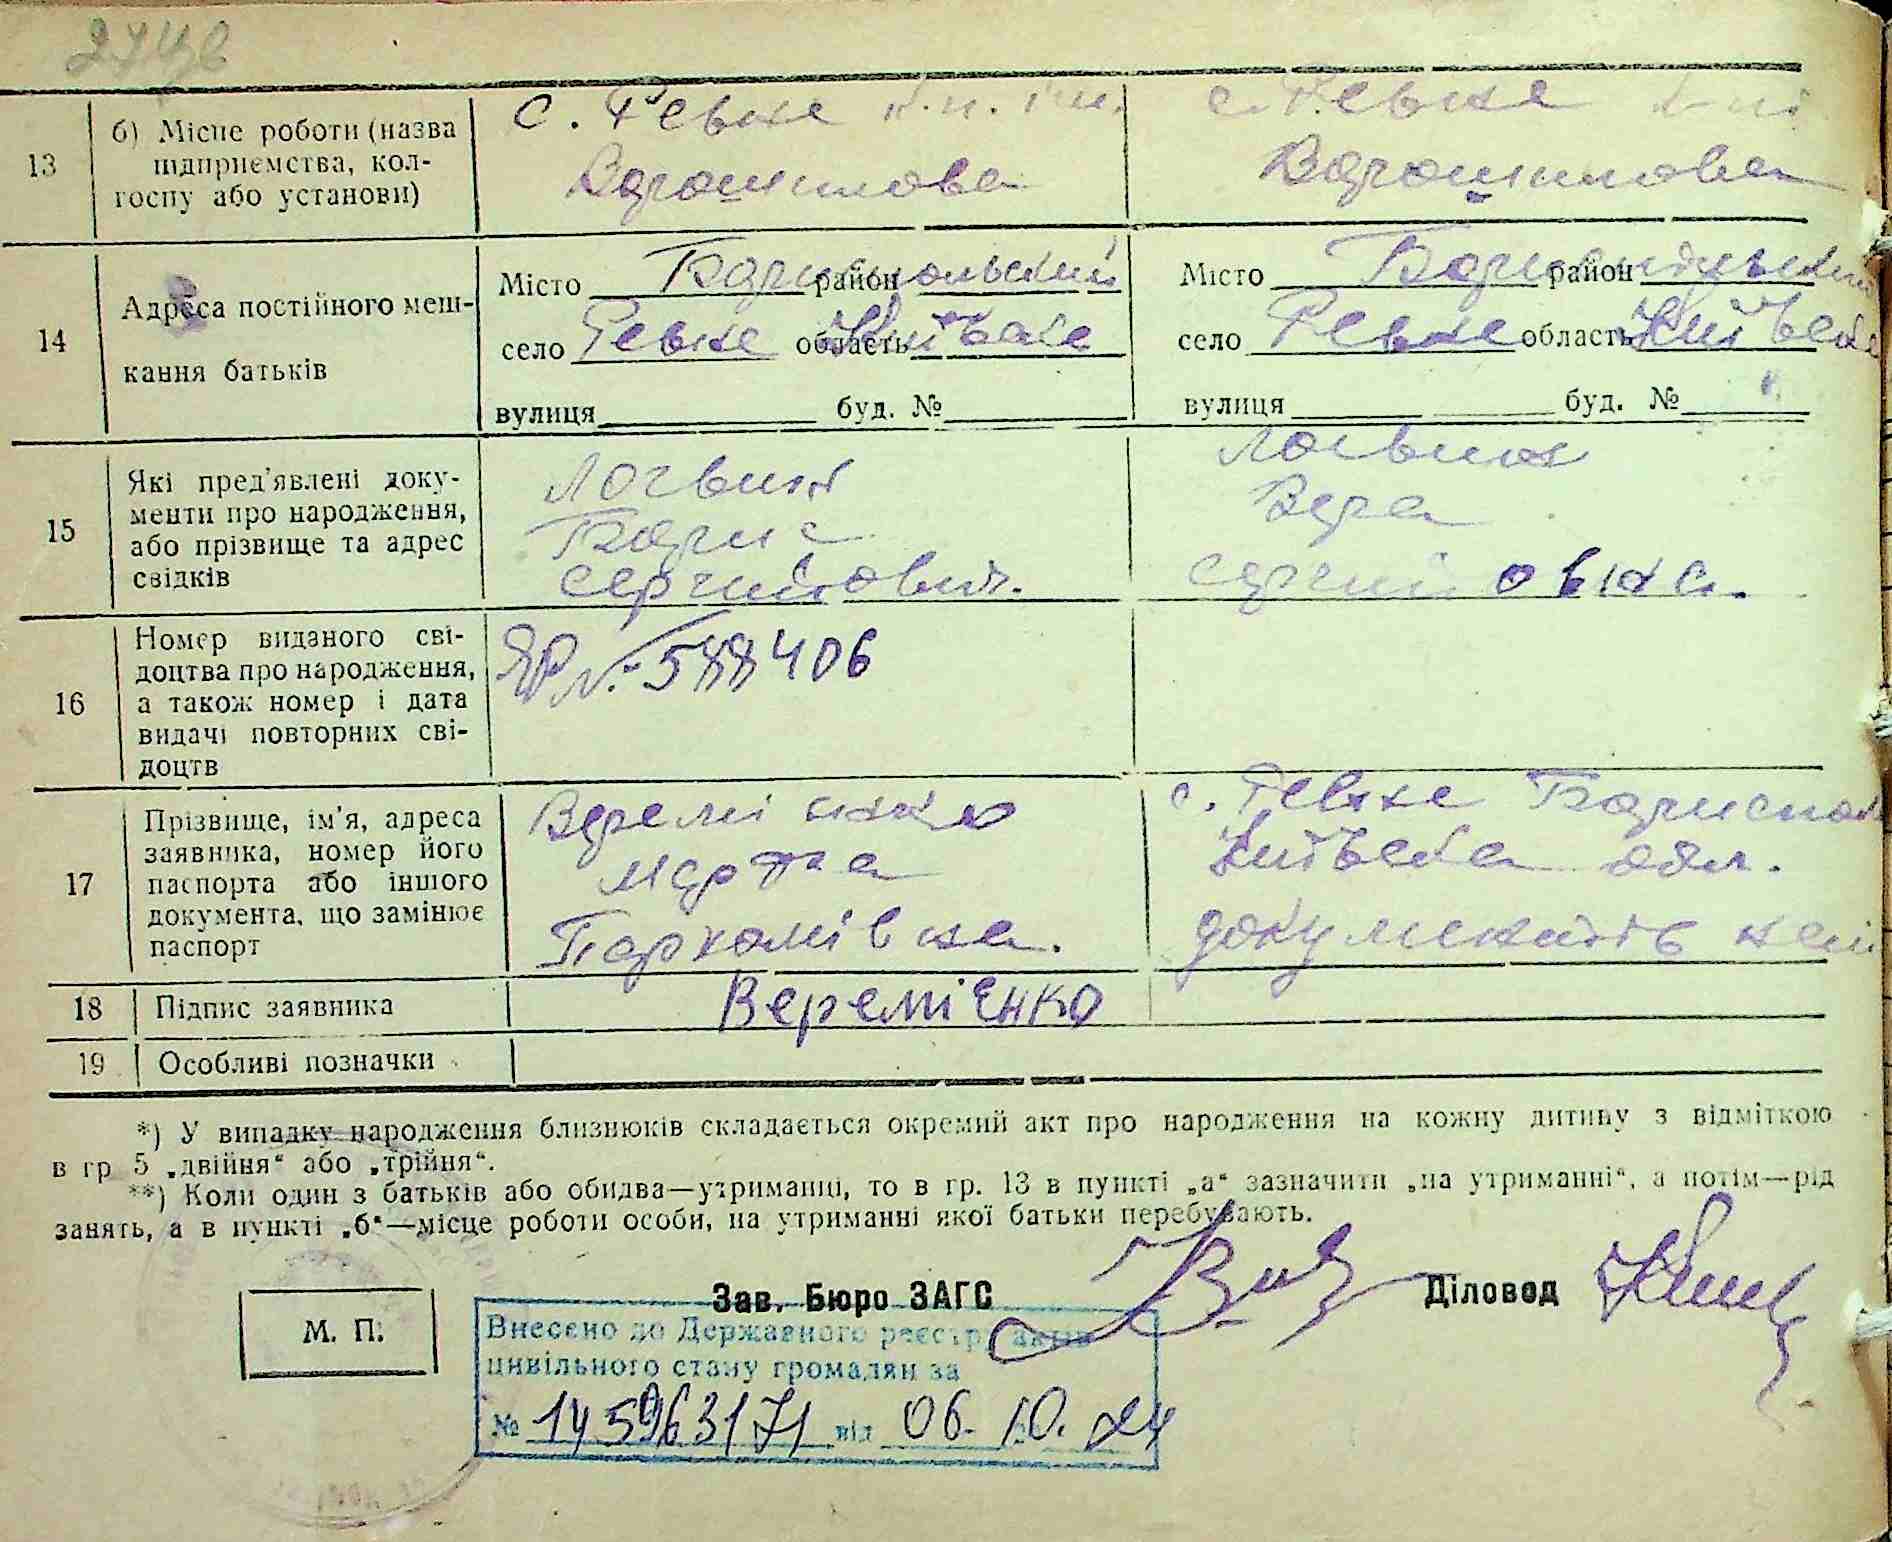 13
б) Місце роботи (назва
підприємства, кол-
госпу або установи)
с. Ревне к.п. ім.
Ворошилова
с. Ревне
Ворошилова
14
Адреса постійного меш-
кання батьків
Місто Бориспольский район
село Ревне область Київська
вулиця буд. №
Місто Бориспільський район
село Ревне область Київська
вулиця буд. №
15
Які пред'явлені доку-
менти про народження,
або прізвище та адрес
свідків
Логвин
Борис
Сергийович.
Логвин
Вера
Сергийовна.
16
Номер виданого сві-
доцтва про народження,
а також номер і дата
видачі повторних сві-
доцтв
ЯР № 588406
17
Прізвище, ім'я, адреса
заявника, номер його
паспорта або іншого
документа, що замінює
паспорт
Веремієнко
Марта
Пархомівна.
с. Ревне Борисполь
Київська обл.
документів нема
18
Підпис заявника
Веремієнко
19
Особливі позначки
*) У випадку народження близнюків складається окремий акт про народження на кожну дитину з відміткою
в гр 5 „двійня“ або „трійня“.
**) Коли один з батьків або обидва—утриманці, то в гр. 13 в пункті „а“ зазначити „на утриманні“, а потім—рід
занять, а в пункті „б“—місце роботи особи, на утриманні якої батьки перебувають.
М. П.
Зав. Бюро ЗАГС
Діловод
Внесено до Державного реєстру актів
цивільного стану громадян за
№ 1459963171 від 06.10.24